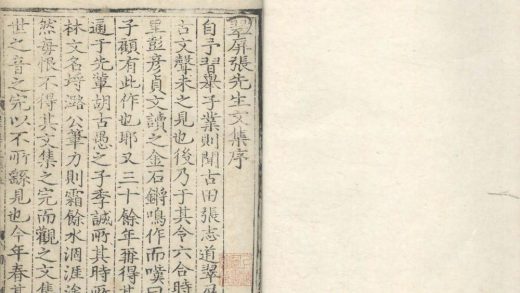 翠屏張先生文集序
自予習舉子業則聞古田張志道翠屏
古文聲未之見也後乃于其令六合時
星彭彥貞文讀之金石鏘鳴作而嘆曰
子顧有此作也耶又三十餘年再得其
通于先輩胡古愚之子季誠所其時所
林文名埒潞公筆力則霜餘水涸涯涘
然每恨不得其文集之完而觀之文集
世之音之完以不所繇見也今年春其